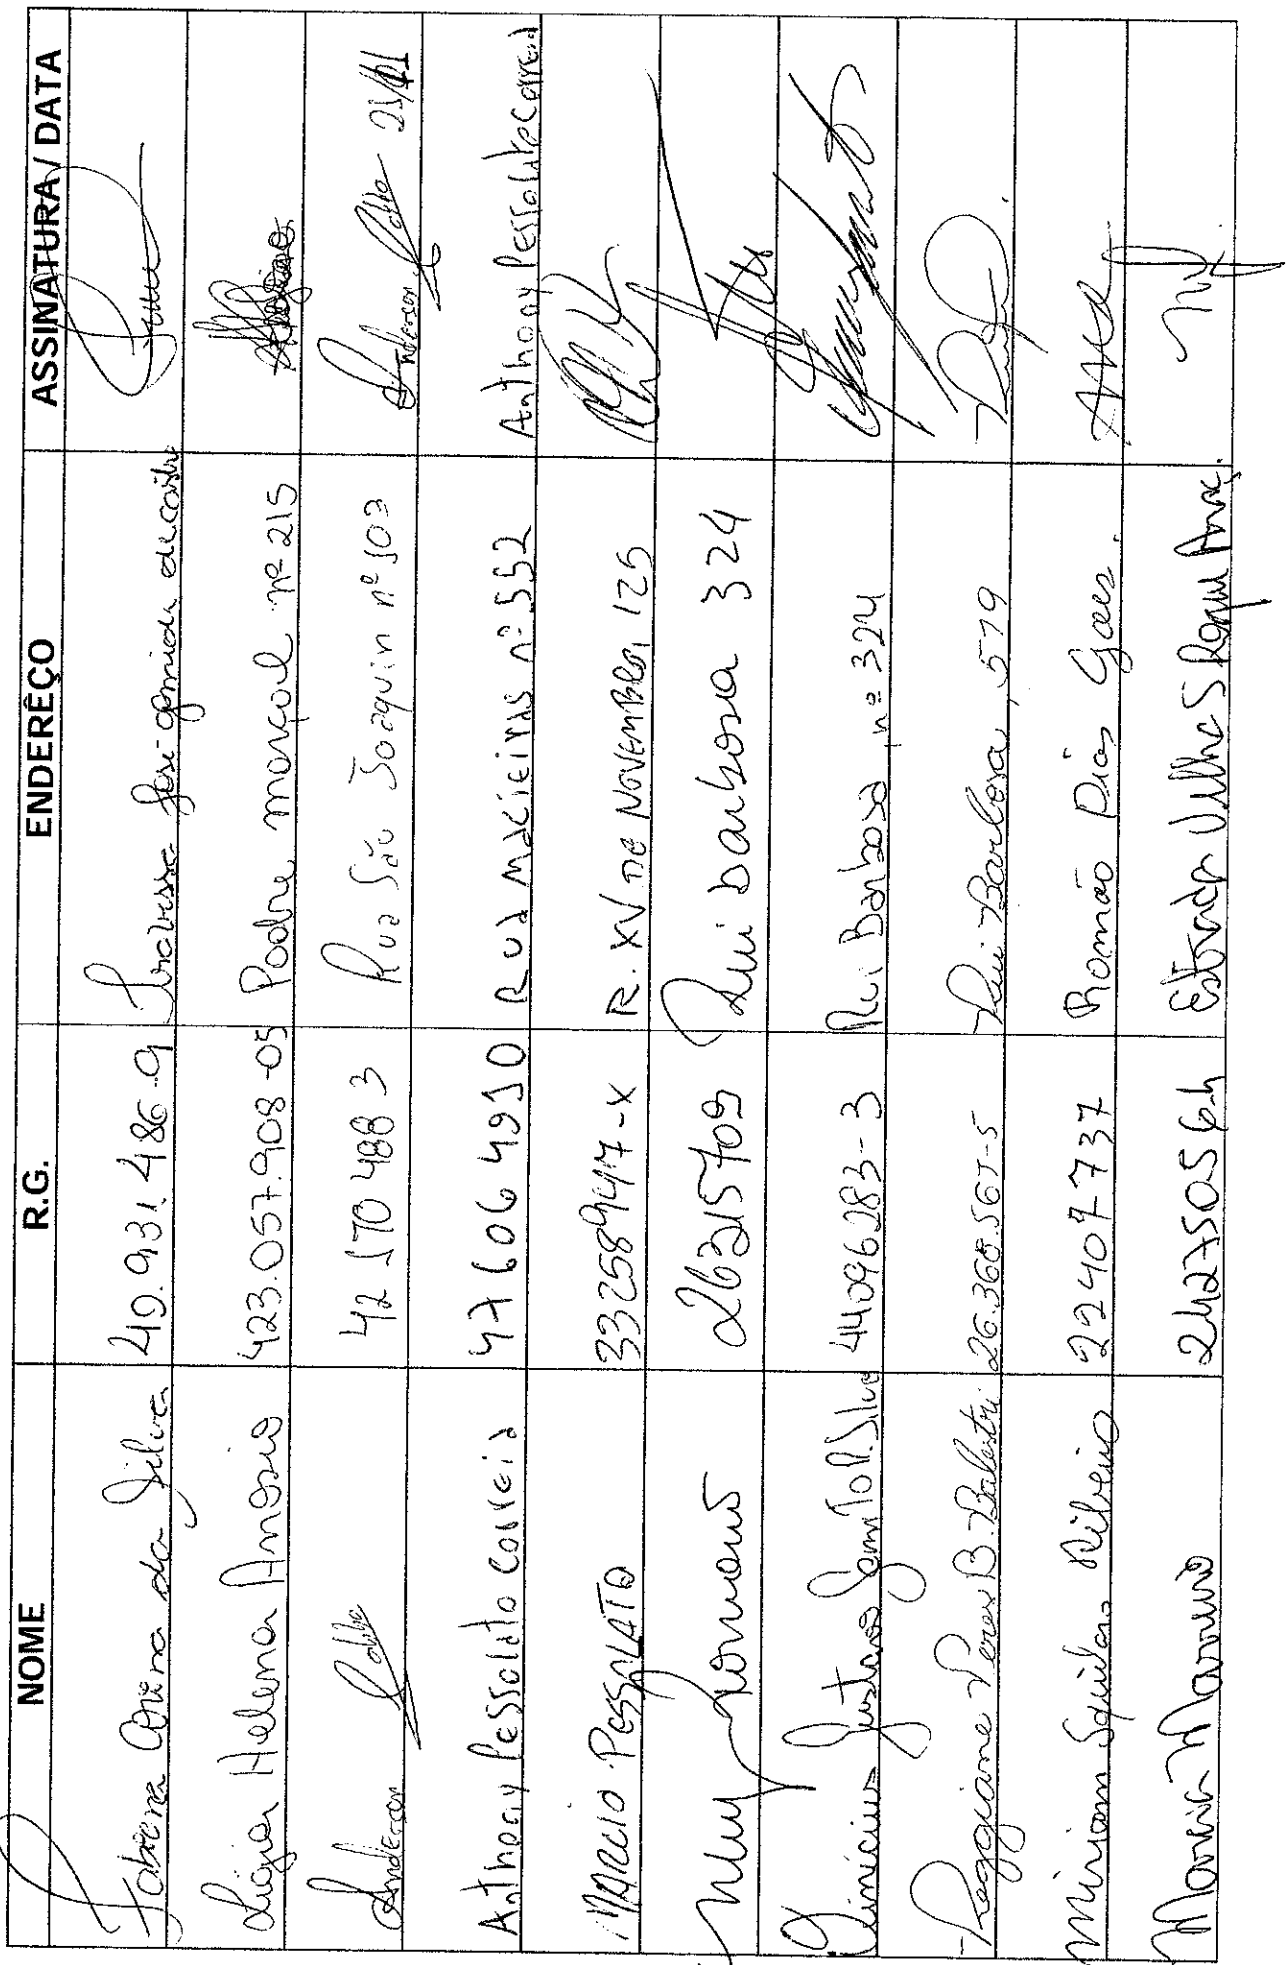 NOME R.G. ENDERÊÇO ASSINATURA / DATA
Fabiana da Silva 49.931.486-9 Travessa José de castro
Ligia Helena Anesio 423.057.908-05 Padre marçal nº 215
Anderson 42 170 488 3 Rua São Joaquin nº 103 Anderson 25/01
Anthony Pessolato Correia 47 606 4910 Rua macieiras nº 552 Anthony Pessolato Correia
MARCIO PESSOLATO 33258947-X R. XV DE NOVEMBRO, 125
26315709 Rui barbosa 324
Vinicius Gustavo Silva 44096283-3 Rui Barbosa nº 324
Reggiane Peres B. Balestri 26.368.567-5 Rui Barbosa, 579
Miriam Ribeiro 22409737 Romão Dias Goes.
Maria 24275056-4 Estrada Velha S Roque